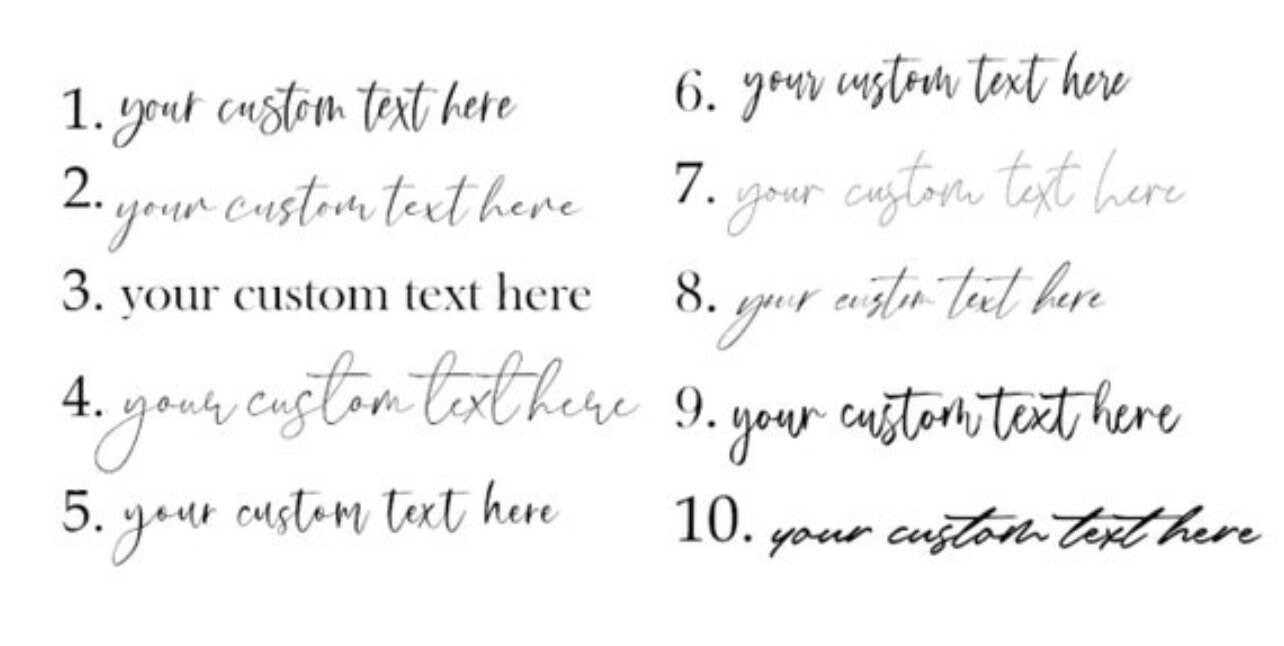 1. your custom text here
2. your custom text here
3. your custom text here
4. your custom text here
5. your custom text here
6. your custom text here
7. your custom text here
8. your custom text here
9. your custom text here
10. your custom text here